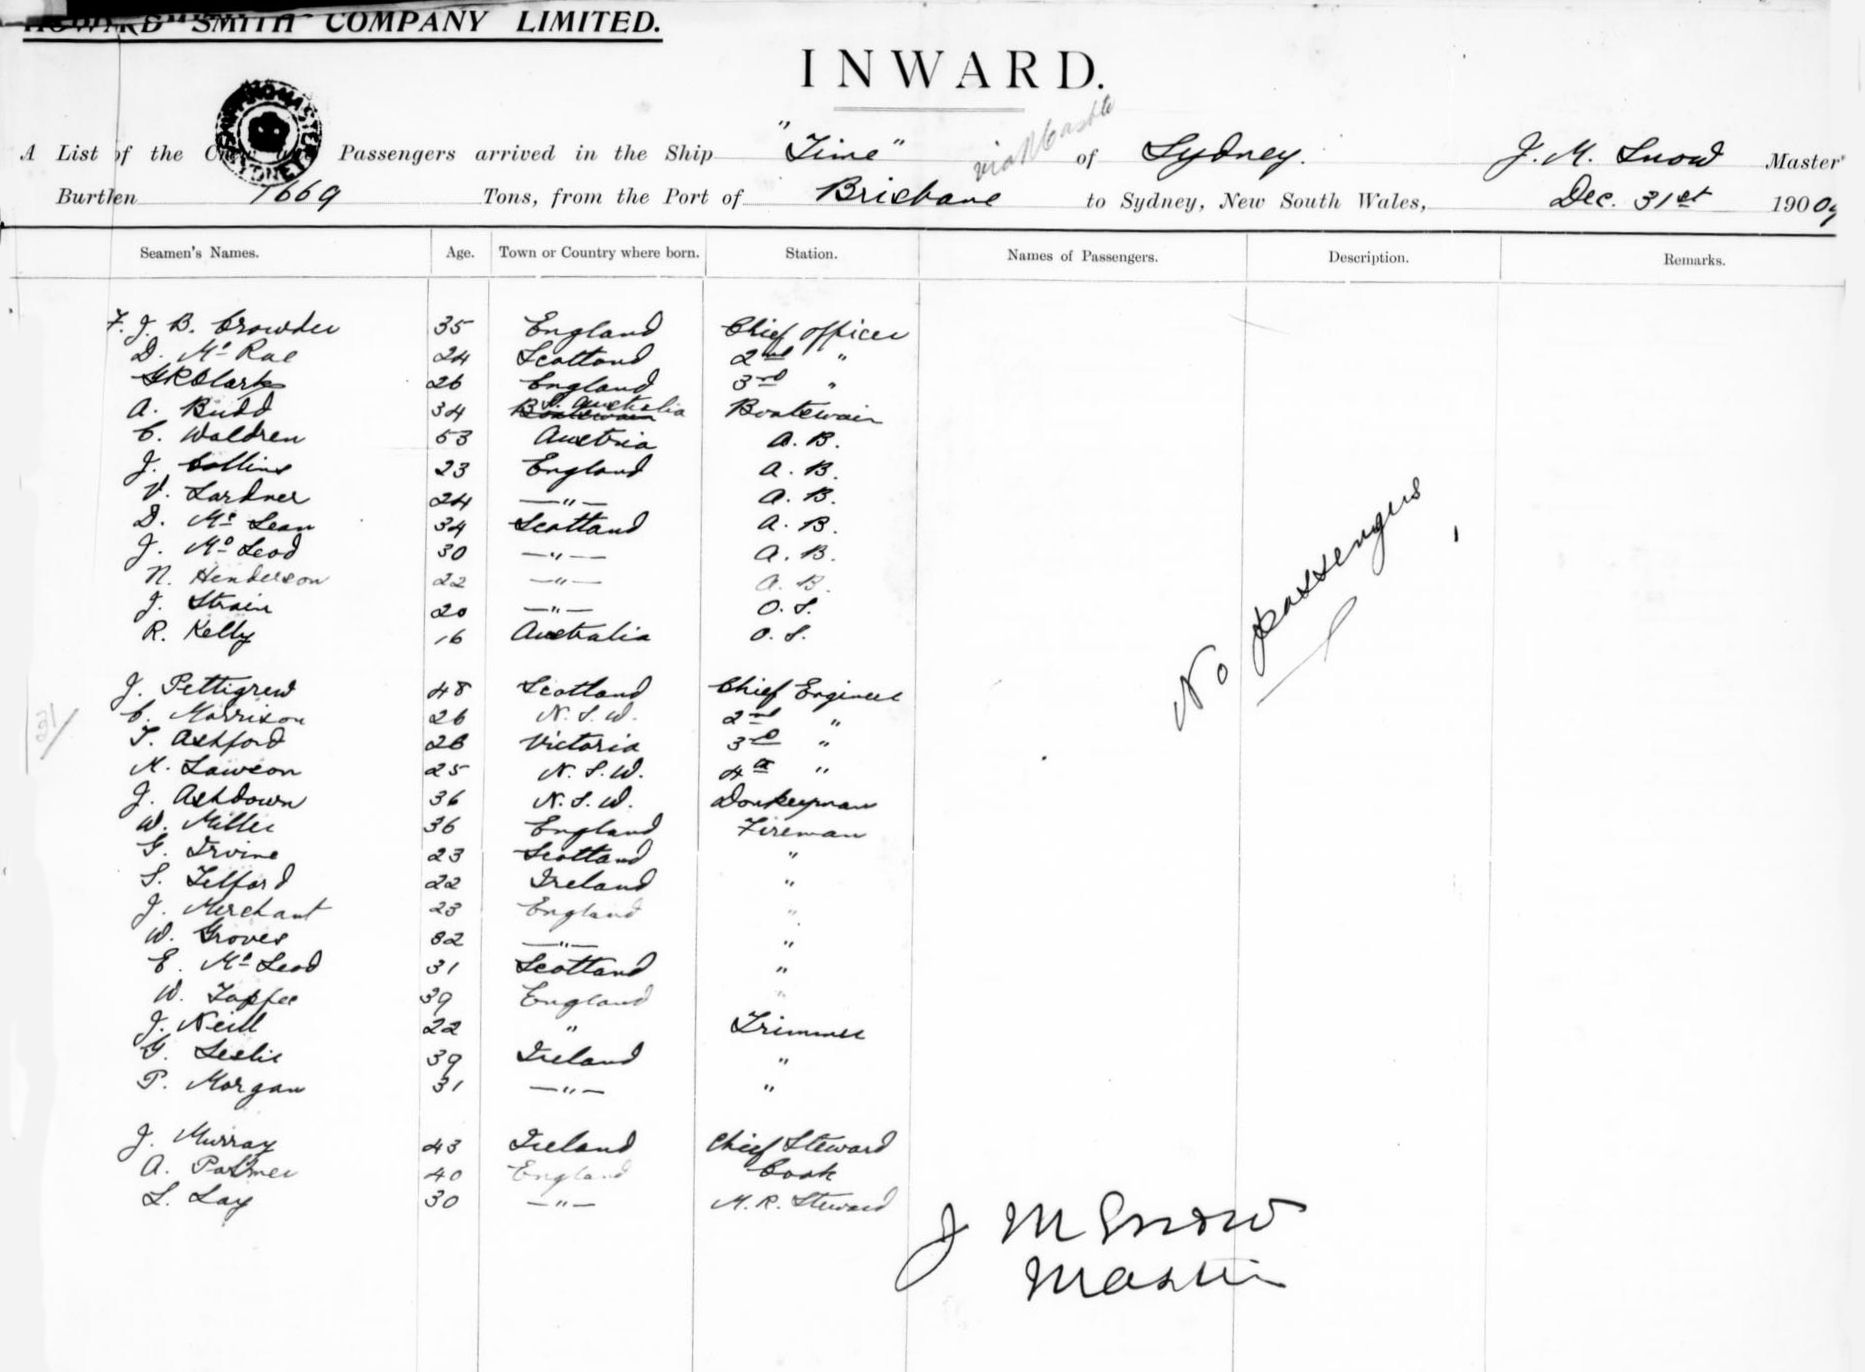 HOWARD SMITH COMPANY LIMITED.
INWARD.
A List of the Crew and Passengers arrived in the Ship "Time" via of Sydney. J. M. Snow Master
Burthen 1669 Tons, from the Port of Brisbane to Sydney, New South Wales, Dec. 31st 1909
Seamen's Names. Age. Town or Country where born. Station. Names of Passengers. Description. Remarks.
F. J. B. Crowder 35 England Chief Officer
D. McRae 24 Scotland 2nd "
G R Clark 26 England 3rd "
A. Budd 34 Boatswain S. Australia Boatswain
C. Waldren 53 Austria A. B.
J. Collins 23 England A. B.
V. Lardner 24 —"— A. B.
D. McLean 34 Scotland A. B.
J. McLeod 30 —"— A. B.
N. Henderson 22 —"— A. B.
J. Strain 20 —"— O. S.
R. Kelly 16 Australia O. S.
No passengers
J. Pettigrew 48 Scotland Chief Engineer
C. Morrison 26 N. S. W. 2nd "
T. Ashford 26 Victoria 3rd "
31
K. Lawson 25 N. S. W. 4th "
J. Ashdown 36 N. S. W. Donkeyman
W. Miller 36 England Fireman
G. Irvine 23 Scotland "
S. Telford 22 Ireland "
J. Merchant 23 England "
W. Groves 32 —"— "
E. McLeod 31 Scotland "
W. 39 England "
J. Neill 22 " Trimmer
G. Leslie 39 Ireland "
P. Morgan 31 —"— "
J. Murray 43 Ireland Chief Steward
A. Palmer 40 England Cook
L. Lay 30 —"— M. R. Steward
J M Snow
Master